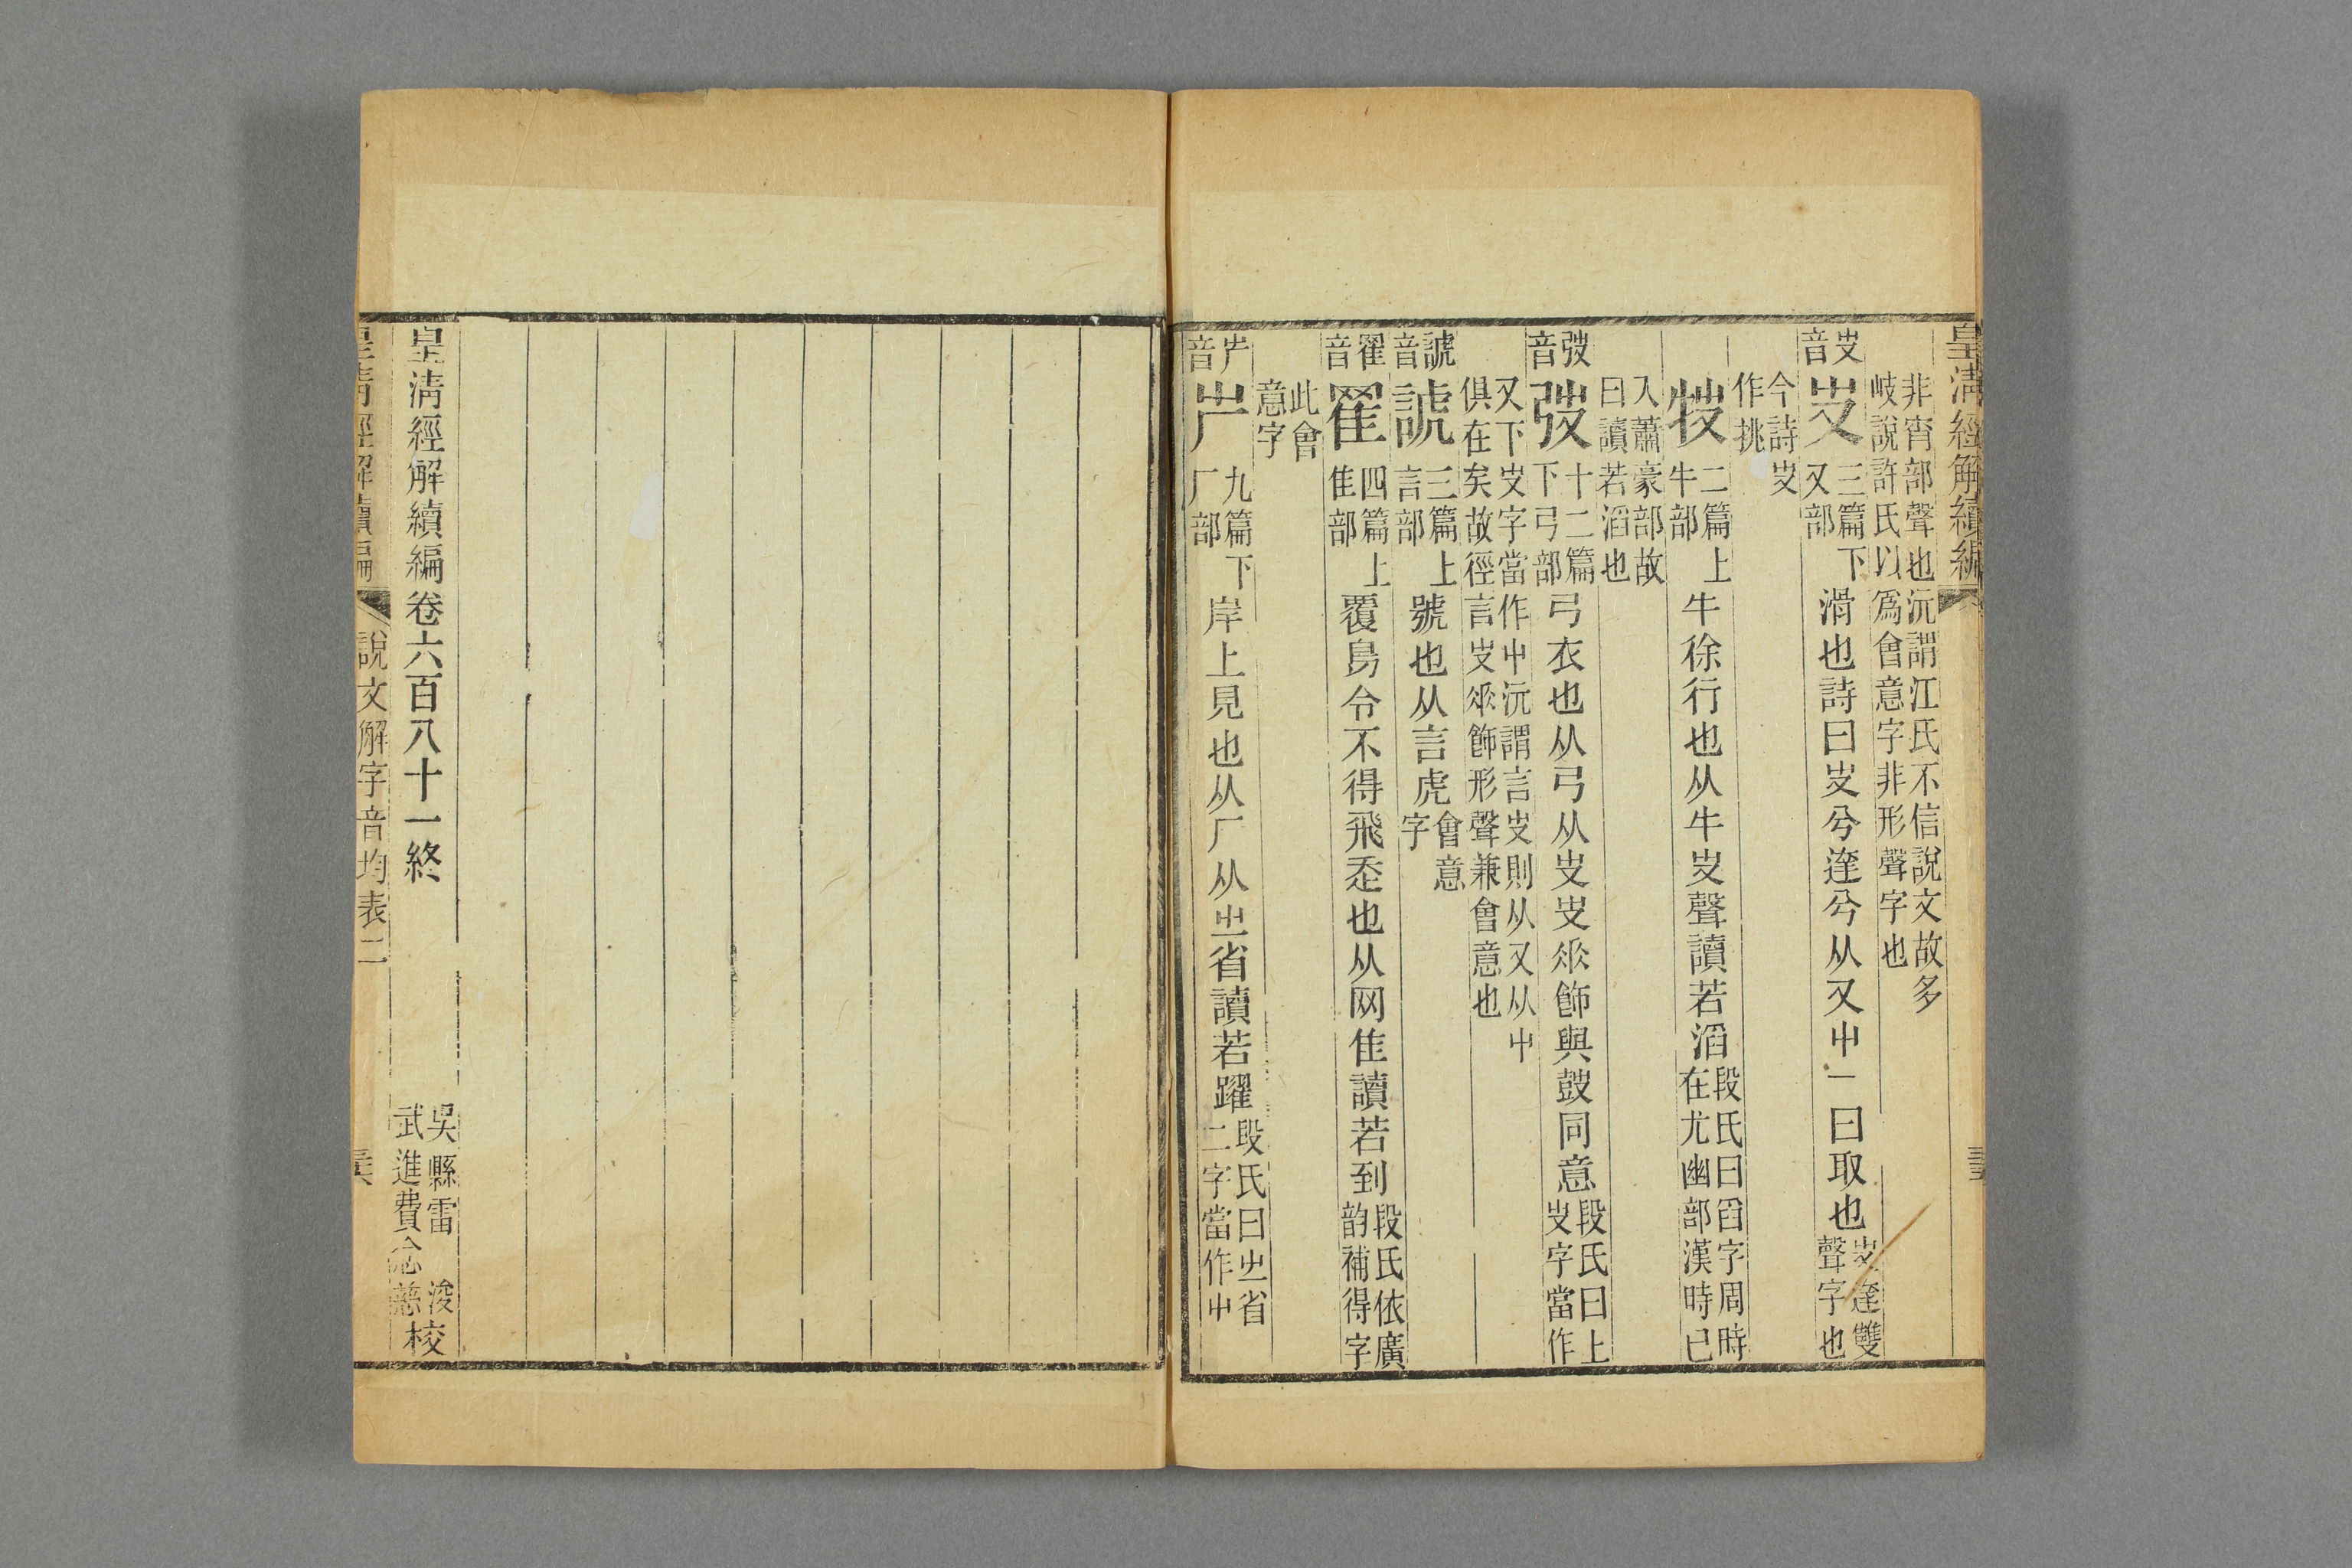 皇淸經解續編
非宵部聲也沅謂江氏不信說文故多
岐說許氏以爲會意字非形聲字也
𠬢音
𠬢
三篇下又部
滑也詩曰𠬢兮達兮从又屮一曰取也
𠬢達雙聲字也
今詩𠬢作挑
𤘾
二篇上牛部
牛徐行也从牛𠬢聲讀若滔
段氏曰舀字周時在尤幽部漢時已
入蕭豪部故曰讀若滔也
弢音
弢
十二篇下弓部
弓衣也从弓从𠬢𠬢𠂹飾與鼓同意
段氏曰上𠬢字當作
又下𠬢字當作屮沅謂言𠬢則从又从屮
俱在矣故徑言𠬢𠂹飾形聲兼會意也
諕音
諕
三篇上言部
號也从言虎
會意字
䍜音
䍜
四篇上隹部
覆鳥令不得飛走也从网隹讀若到
段氏依廣韵補得字
此會意字
屵音
屵
九篇下厂部
岸上見也从厂从㞢省讀若躍
段氏曰㞢省二字當作屮
皇淸經解續編卷六百八十一終
吳縣雷浚
武進費念慈校
皇淸經解續編
說文解字音均表二